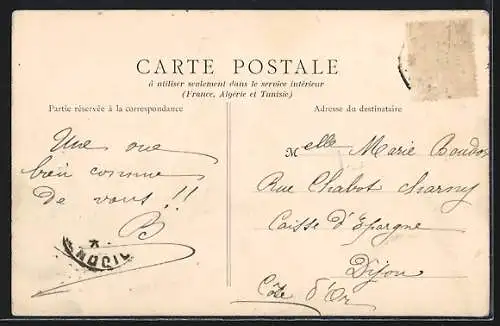 CARTE POSTALE
à utiliser seulement dans le service intérieur
(France, Algérie et Tunisie)
Partie réservée à la correspondance
Adresse du destinataire
Une vue
bien connue
de vous !!
B
Melle Marie Baudot
Rue Chabot Charny
Caisse d'Epargne
Dijon
Côte d'Or